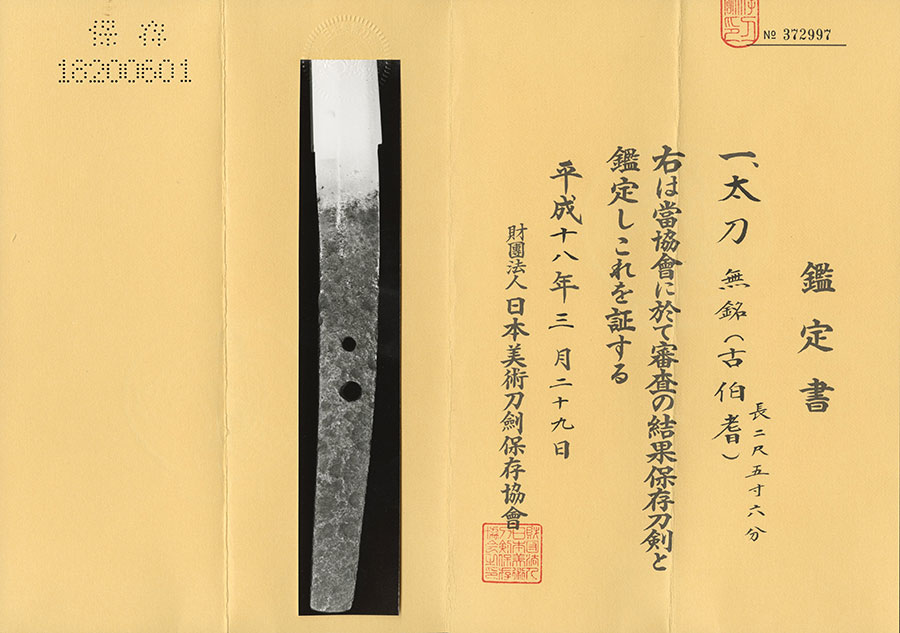 保存
18200601
№ 372997
鑑定書
一、太刀 無銘(古伯耆)
長二尺五寸六分
右は當協會に於て審査の結果保存刀剣と
鑑定しこれを証する
平成十八年三月二十九日
財團法人日本美術刀劍保存協會